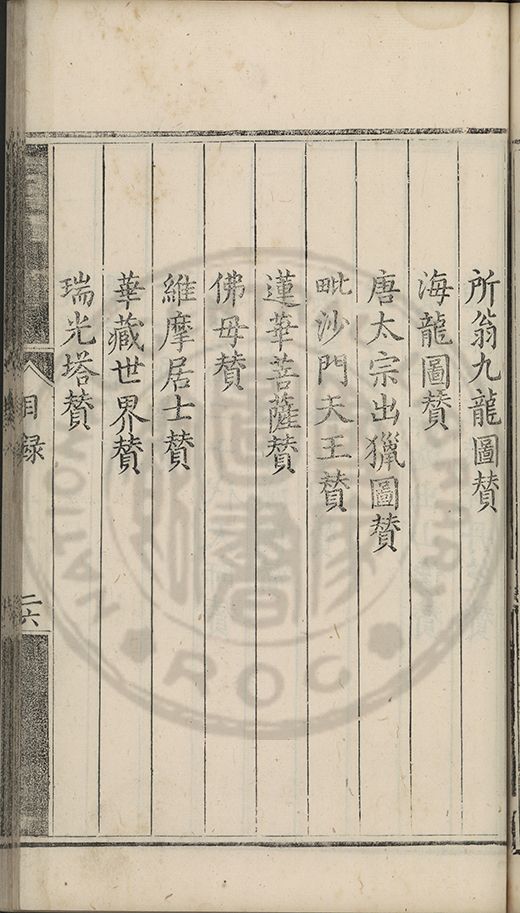 所翁九龍圖賛
海龍圖賛
唐太宗出獵圖賛
毗沙門天王賛
蓮華菩薩賛
佛母賛
維摩居士賛
華藏世界賛
瑞光塔賛
目録
二六